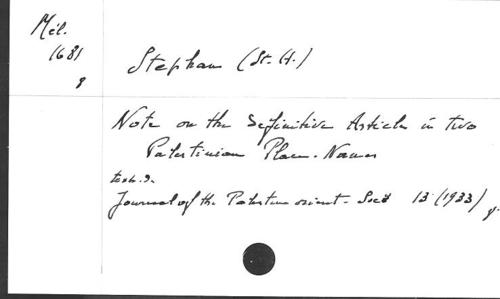 Mél.
1681
8
Stephan (St. H.)
Note on the Definitive Article in two
Palestinian Place-Names
Journal of the Palestine orient. Soc. 13 (1933)